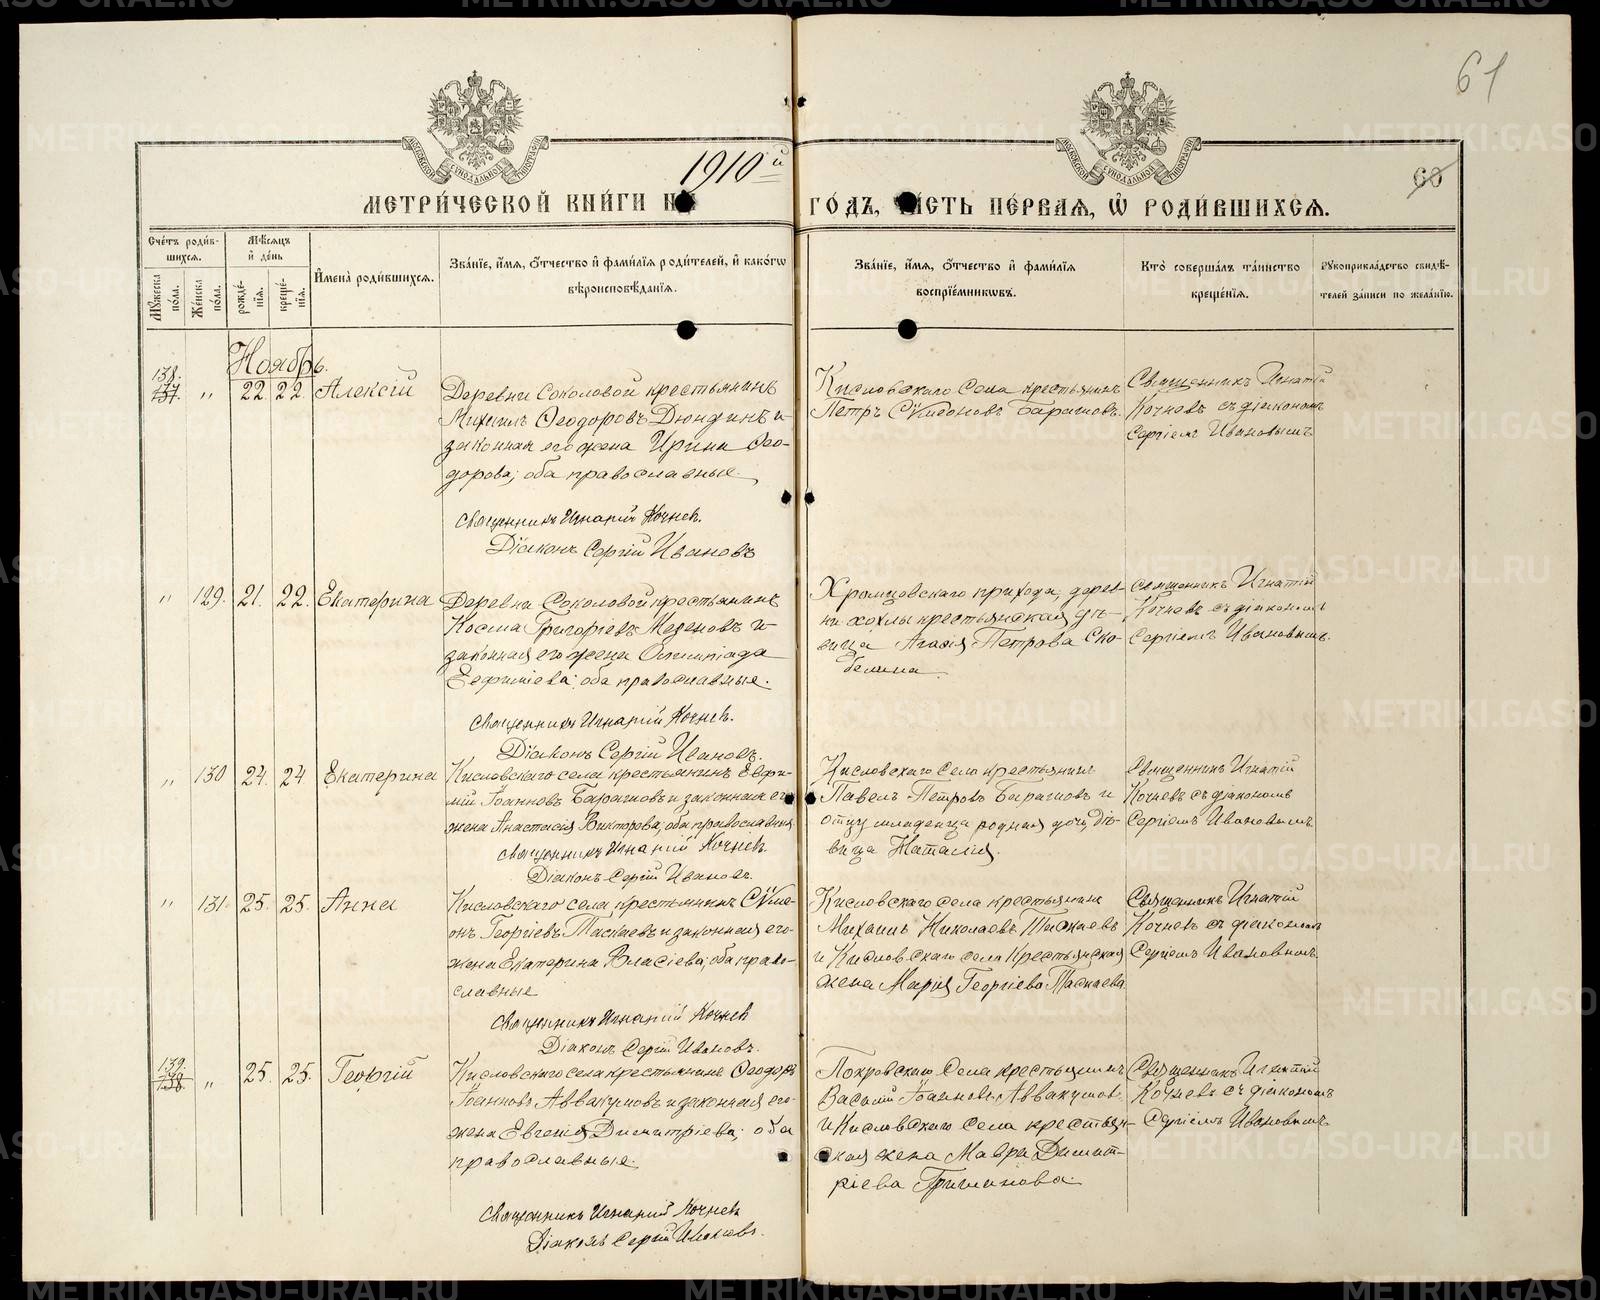 61
1910й
60
МЕТРИ́ЧЕСКОЙ КНИ́ГИ НА ГО́ДЪ, ЧА́СТЬ ПЕ́РВАЯ, Ѡ РОДИ́ВШИХСЯ.
Сче́тъ роди́вшихся.
Му́жеска по́ла.
Же́нска по́ла.
Мѣ́сяцъ и҆ де́нь
рожде́нїя.
креще́нїя.
И҆мена̀ роди́вшихся.
Зва́нїе, и҆́мя, ѻ҆́тчество и҆ фами́лїя роди́телей, и҆ како́гѡ вѣроисповѣ́данїя.
Зва́нїе, и҆́мя, ѻ҆́тчество и҆ фами́лїя воспрїе́мникѡвъ.
Кто̀ соверша́лъ та́инство креще́нїя.
Рꙋкоприкла́дство свидѣ́телей за́писи по жела́нїю.
Ноябрь.
138.
137.
"
22. 22.
Алексій
Деревни Соколовой крестьянинъ
Михаилъ Ѳеодоровъ Дюндинъ и
законная его жена Ирина Ѳео-
дорова; оба православные.
Священникъ Игнатій Кочневъ.
Діаконъ Сергій Ивановъ
Кисловскаго Села крестьянинъ
Петръ Сѷмеоновъ Барашовъ.
Священникъ Игнатій
Кочневъ съ діакономъ
Сергіемъ Ивановымъ
" 129. 21. 22.
Екатерина
Деревни Соколовой крестьянинъ
Косма Григоріевъ Мезеновъ и
законная его жена Олимпіада
Евфиміева; оба православные.
Священникъ Игнатій Кочневъ.
Діаконъ Сергій Ивановъ.
Хромцовскаго прихода, дерев-
ни Хохлы крестьянская дѣ-
вица Агаѳія Петрова Ско-
белина
Священникъ Игнатій
Кочневъ съ діакономъ
Сергіемъ Ивановымъ.
" 130 24. 24
Екатерина
Кисловскаго села крестьянинъ Евфи-
мій Іоанновъ Барашовъ и законная его
жена Анастасія Викторова; оба православныя
Священникъ Игнатій Кочневъ.
Діаконъ Сергій Ивановъ.
Кисловскаго Села крестьянинъ
Павелъ Петровъ Барашовъ и
отцу младенца родная дочь, дѣ-
вица Наталія.
Священникъ Игнатій
Кочневъ съ діакономъ
Сергіемъ Ивановымъ.
" 131. 25. 25.
Анна
Кисловскаго села крестьянинъ Сѷме-
онъ Георгіевъ Таскаевъ и законная его
жена Екатерина Власіева; оба право-
славные
Священникъ Игнатій Кочневъ
Діаконъ Сергій Ивановъ.
Кисловскаго села крестьянинъ
Михаилъ Николаевъ Таскаевъ
и Кисловскаго села Крестьянская
жена Марія Георгіева Таскаева
Священникъ Игнатій
Кочневъ съ діакономъ
Сергіемъ Ивановымъ.
139.
138.
"
25. 25.
Георгій
Кисловскаго села крестьянинъ Ѳеодоръ
Іоанновъ Аввакумовъ и законная его
жена Евгенія Димитріева; оба
православные.
Священникъ Игнатій Кочневъ
Діаконъ Сергій Ивановъ.
Покровскаго Села крестьянинъ
Василій Іоанновъ Аввакумовъ
и Кисловскаго села крестьян-
ская жена Мавра Димит-
ріева
Священникъ Игнатій
Кочневъ съ діакономъ
Сергіемъ Ивановымъ.
METRIKI.GASO-URAL.RU